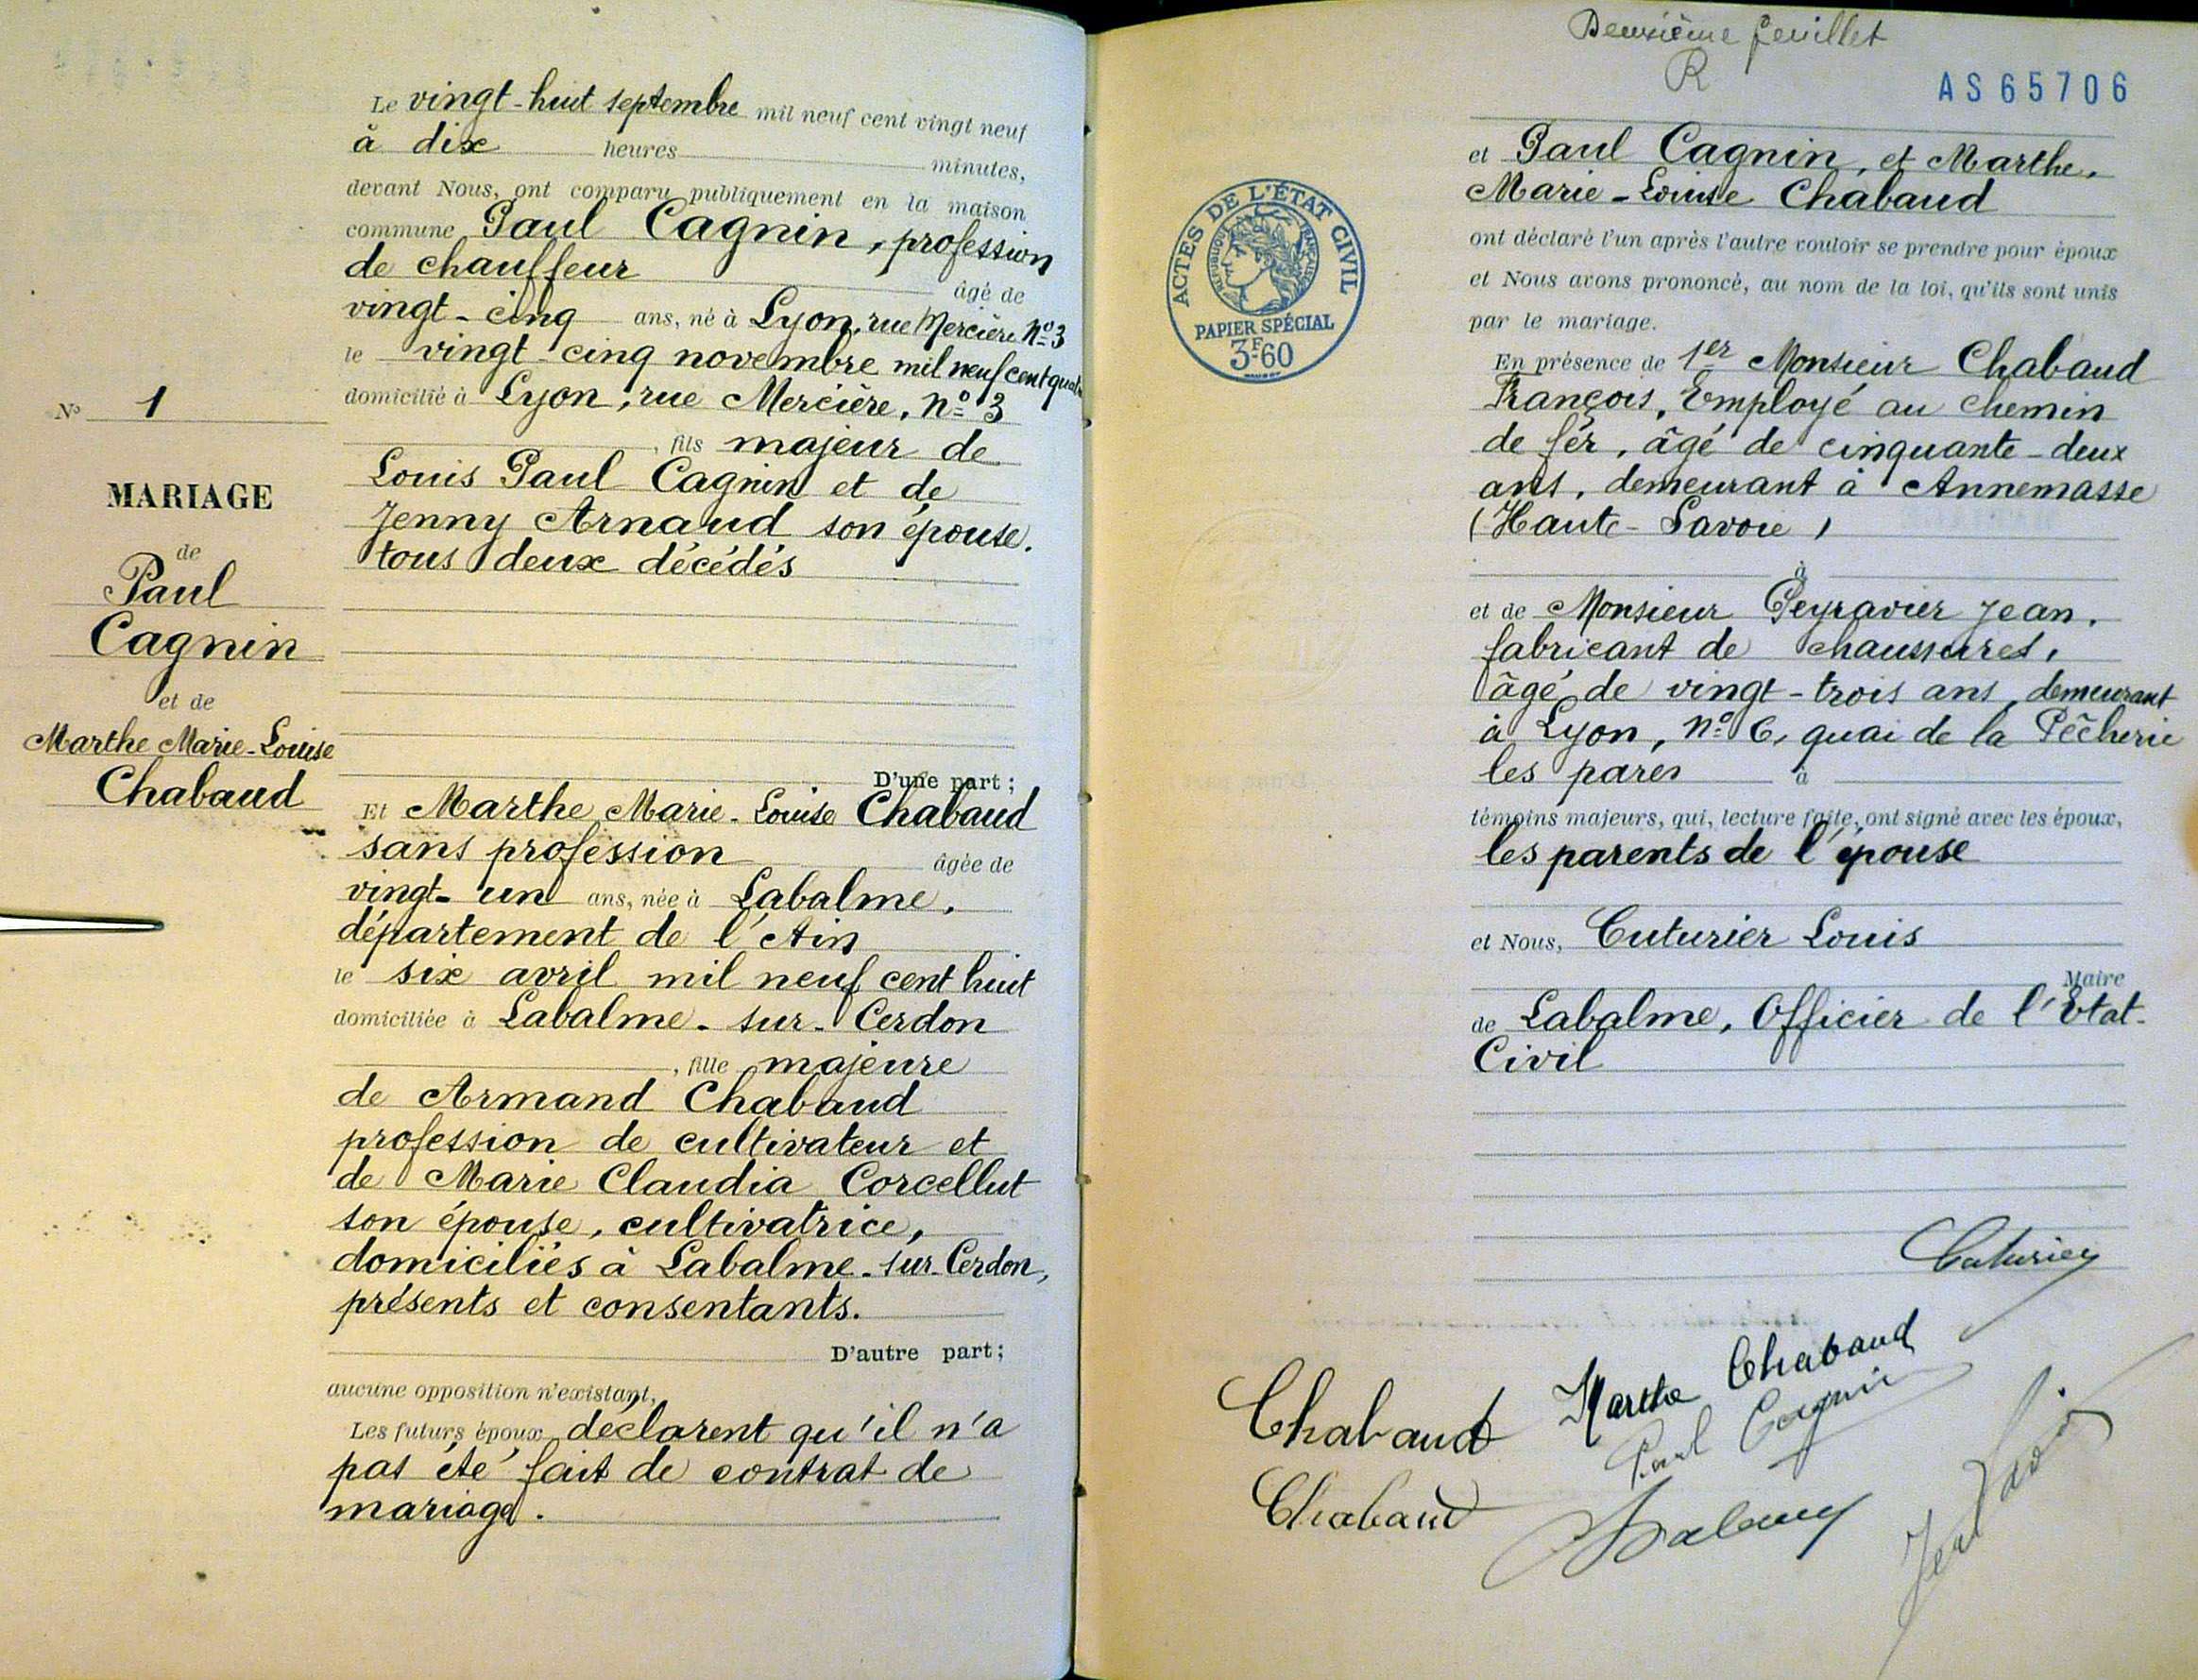 Le vingt-huit septembre mil neuf cent vingt neuf
à dix heures minutes,
devant Nous, ont comparu publiquement en la maison
commune Paul Cagnin, profession
de chauffeur âgé de
vingt-cinq ans, né à Lyon, rue Mercière Nº 3
le vingt-cinq novembre mil neuf cent quatre
domicilié à Lyon, rue Mercière, nº 3
, fils majeur de
Louis Paul Cagnin et de
Jenny Arnaud son épouse.
tous deux décédés
D'une part;
Nº 1
MARIAGE
de
Paul
Cagnin
et de
Marthe Marie-Louise
Chabaud
Et Marthe Marie-Louise Chabaud
sans profession âgée de
vingt-un ans, née à Labalme,
département de l'Ain
le six avril mil neuf cent huit
domiciliée à Labalme-sur-Cerdon
, fille majeure
de Armand Chabaud
profession de cultivateur et
de Marie Claudia Corcellut
son épouse, cultivatrice,
domiciliés à Labalme-sur-Cerdon,
présents et consentants.
D'autre part;
aucune opposition n'existant,
Les futurs époux déclarent qu'il n'a
pas été fait de contrat de
mariage.
Deuxième feuillet
R
AS65706
ACTES DE L'ÉTAT CIVIL
RÉPUBLIQUE FRANÇAISE
PAPIER SPÉCIAL
3F60
et Paul Cagnin, et Marthe,
Marie-Louise Chabaud
ont déclaré l'un après l'autre vouloir se prendre pour époux
et Nous avons prononcé, au nom de la loi, qu'ils sont unis
par le mariage.
En présence de 1er Monsieur Chabaud
François, Employé au chemin
de fer, âgé de cinquante-deux
ans, demeurant à Annemasse
(Haute-Savoie)
à
et de Monsieur Peyravier Jean,
fabricant de chaussures,
âgé de vingt-trois ans, demeurant
à Lyon, nº 6, quai de la Pêcherie
les pares à
témoins majeurs, qui, lecture faite, ont signé avec les époux,
les parents de l'épouse
et Nous, Cuturier Louis
Maire
de Labalme, Officier de l'Etat-
Civil
Cuturier
Marthe Chabaud
Chabaud
Paul Cagnin
Chabaud